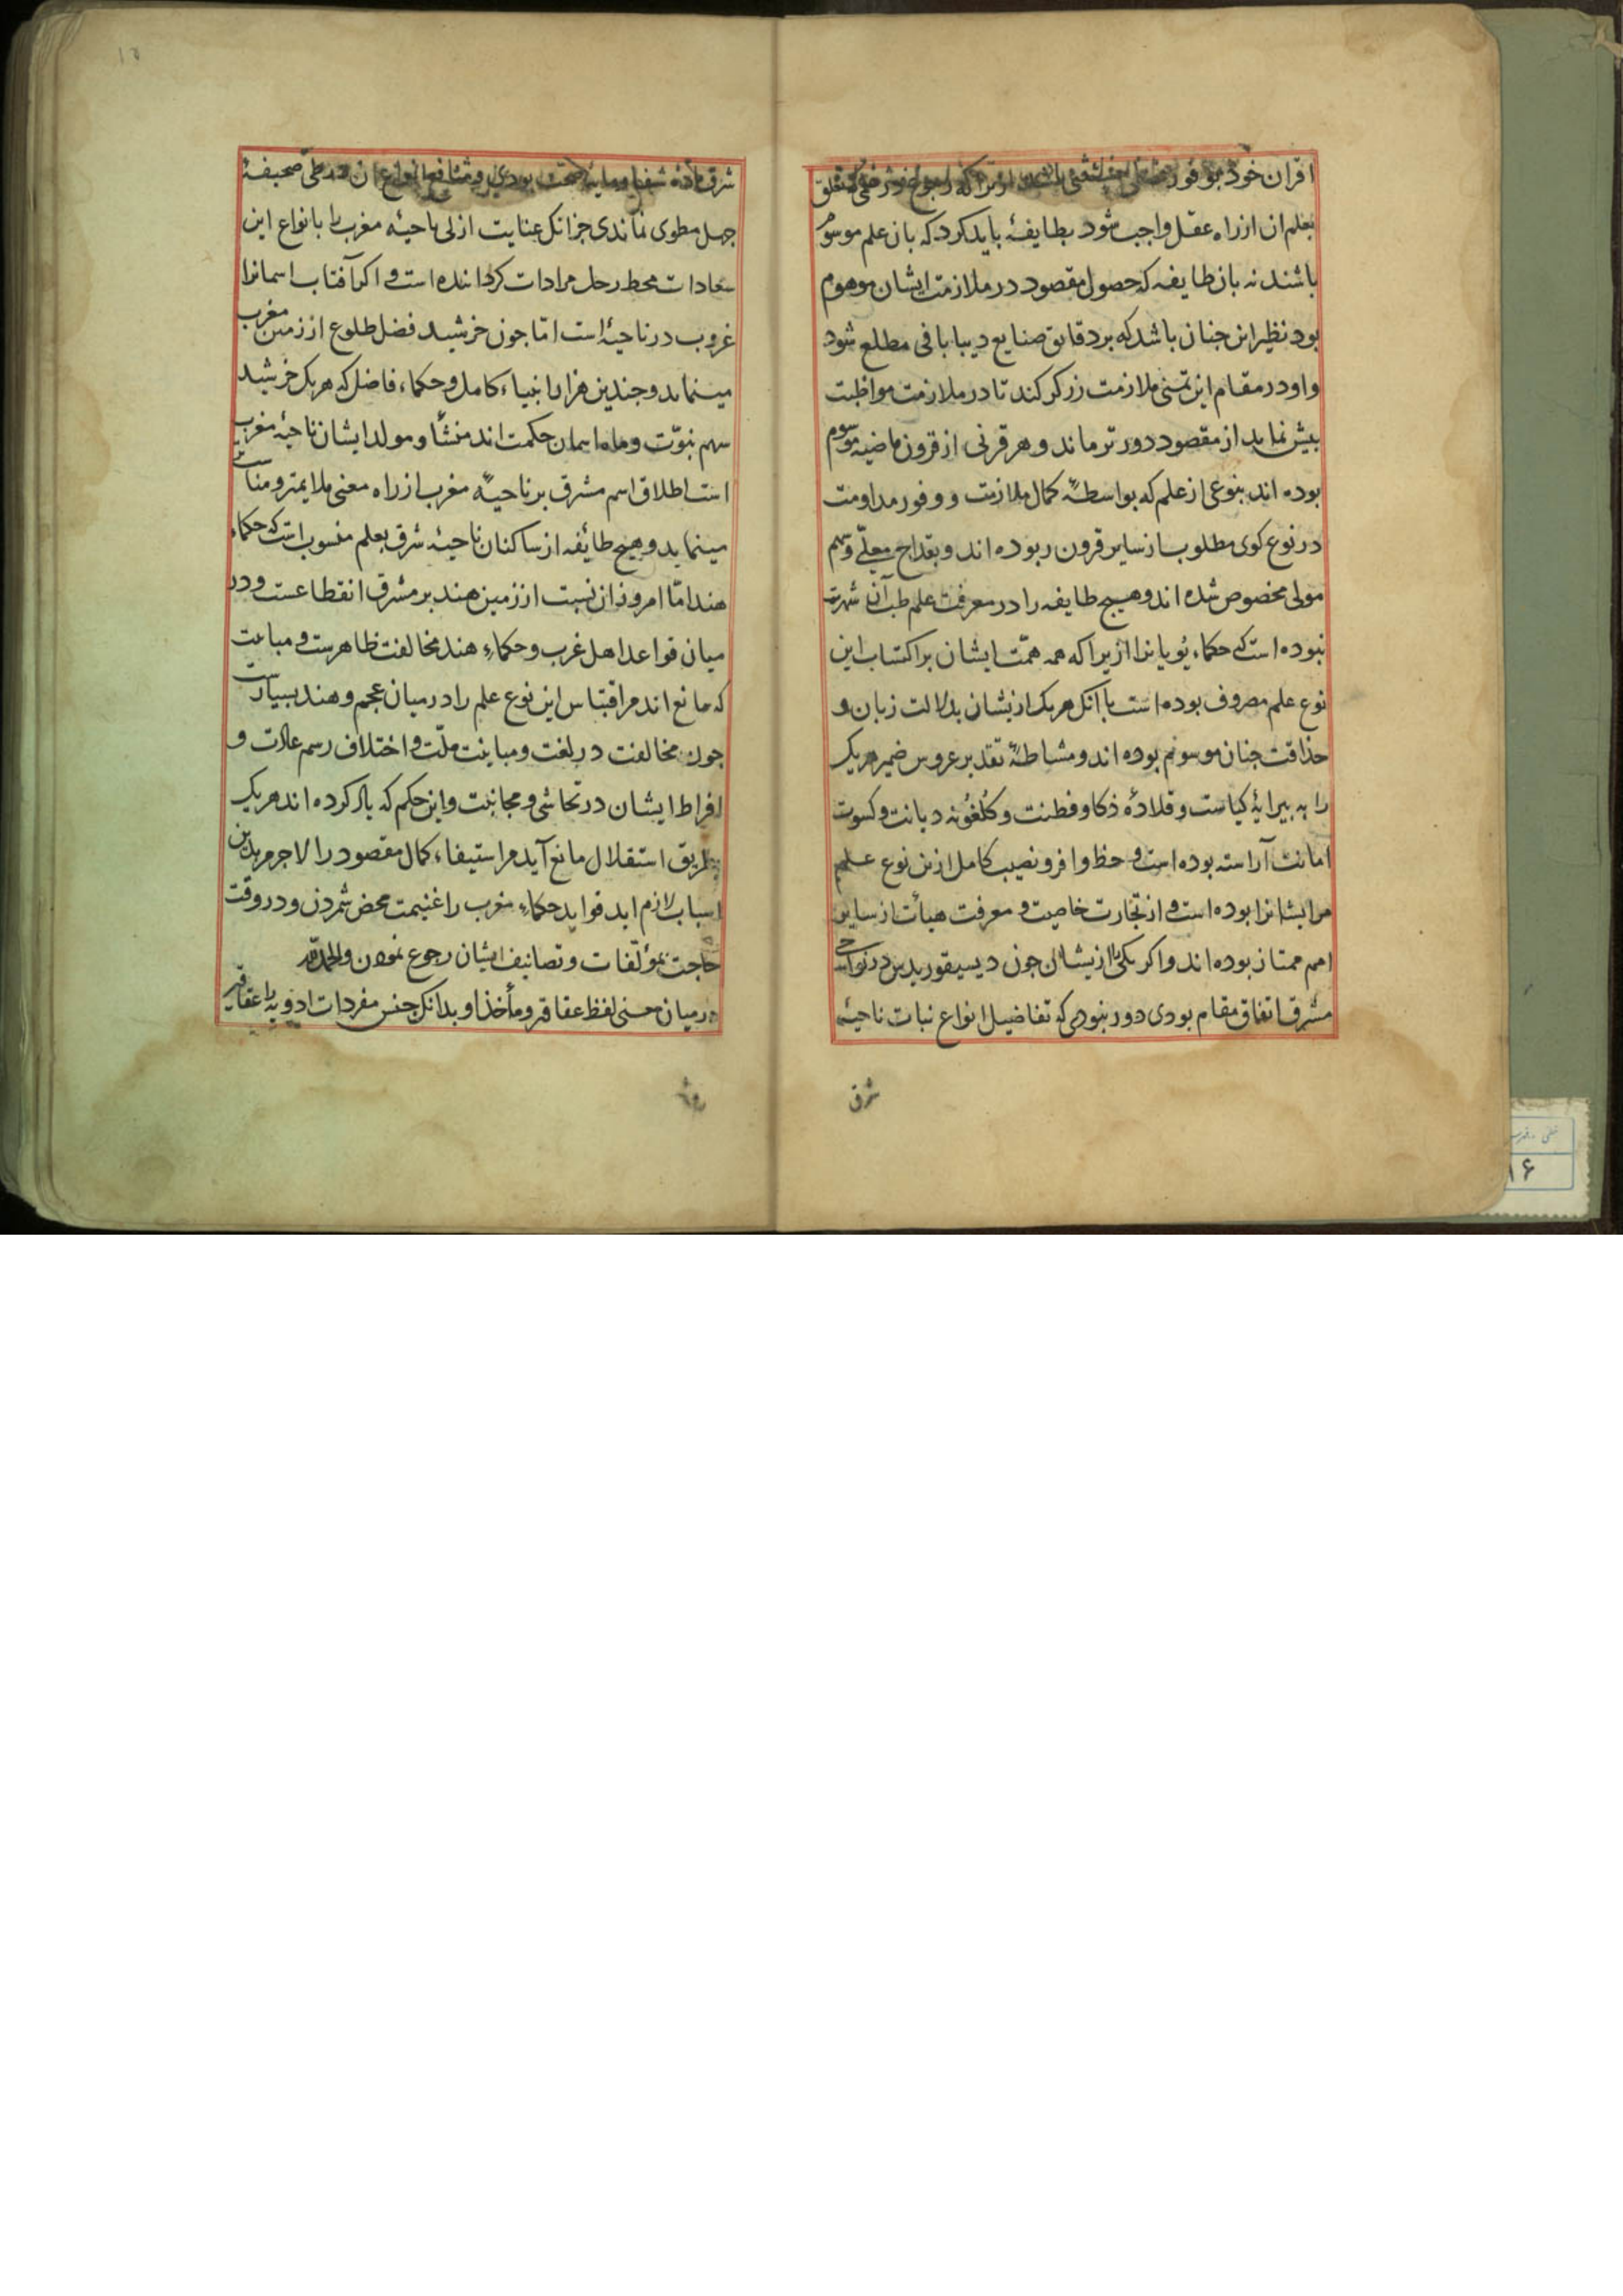 اقران خود بوفور
بعلم ان از راه عقل واجب شود بطایفهٔ باید کرد که بان علم موسوم
باشند نه بان طایفه که حصول مقصود در ملازمت ایشان موهوم
بود نظیر این جنان باشد که بر دقایق صنایع دیبا بافی مطلع شود
و او در مقام این تمنی ملازمت زرکر کند تا در ملازمت مواظبت
بیش نماید از مقصود دورتر ماند و هر قرنی از قرون ماضیه موسوم
بوده اند بنوعی از علم که بواسطهٔ کمال ملازمت و وفور مداومت
در نوع کوی مطلوب از سایر قرون ربوده اند و بقداح معلّی و سهم
مولی مخصوص شده اند و هیچ طایفه را در معرفت علم طب آن شهرت
نبوده است که حکماء یونانرا ازیرا که همه همّت ایشان بر اکتساب این
نوع علم مصروف بوده است با آنک هر یک از یشان بدلالت زبان و
حذاقت جنان موسوم بوده اند و مشاطهٔ تقدیر عروس ضمیر هر یک
را به بیرایهٔ کیاست و قلادهٔ ذکا و فطنت و کلغونه دیانت و کسوت
امانت آراسته بوده است و حظ وافر و نصیب کامل ازین نوع علم
مر ایشانرا بوده است و از تجارت خاصیت و معرفت هیأت از سایر
امم ممتاز بوده اند و اکر یکی را از یشان جون دیسیقوریدس در نواحی
مشرق اتفاق مقام بودی دور نبودی که تفاضیل انواع نبات ناحیهٔ
شرق
شرق مادهٔ شفا و مایهٔ صحت بودی و منافع انواع ان در طی صحیفهٔ
جهل مطوی نماندی جز انک عنایت ازلی ناحیهٔ مغرب را بانواع این
سعادات محط رحل مرادات کردانیده است و اکر آفتاب اسمانرا
غروب در ناحیهٔ است امّا جون خرشید فضل طلوع از زمین مغرب
مینماید و جندین هزار انبیاء کامل و حکماء فاضل که هر یک خرشید
سهم نبوّت و ماه اسمان حکمت اند منشأ و مولد ایشان ناحیهٔ مغرب
است اطلاق اسم مشرق بر ناحیهٔ مغرب از راه معنی ملایمتر و مناسب
مینماید و هیچ طائفه از ساکنان ناحیهٔ شرق بعلم منسوب است که حکماء
هند امّا امروز ان نسبت از زمین هند بر مشرق انقطاعست و در
میان قواعد اهل غرب و حکماء هند مخالفت ظاهرست و مباینت
که مانع اند مر اقتباس این نوع علم را در میان عجم و هند بسیارست
جون مخالفت در لغت و مباینت ملّت و اختلاف رسم عادت و
افراط ایشان در تحاشی و مجانبت و این حکم که یاد کرده اند هر یک
بطریق استقلال مانع آید مر استیفاء کمال مقصود را لاجرم بدین
اسباب لازم اید فواید حکماء مغرب را غنیمت محض شمردن و در وقت
حاجت بمؤلفات و تصانیف ایشان رجوع نمودن والحمد لله
در میان معنی لفظ عقاقیر و مأخذ او بدانک جنس مفردات ادویه را عقاقیر